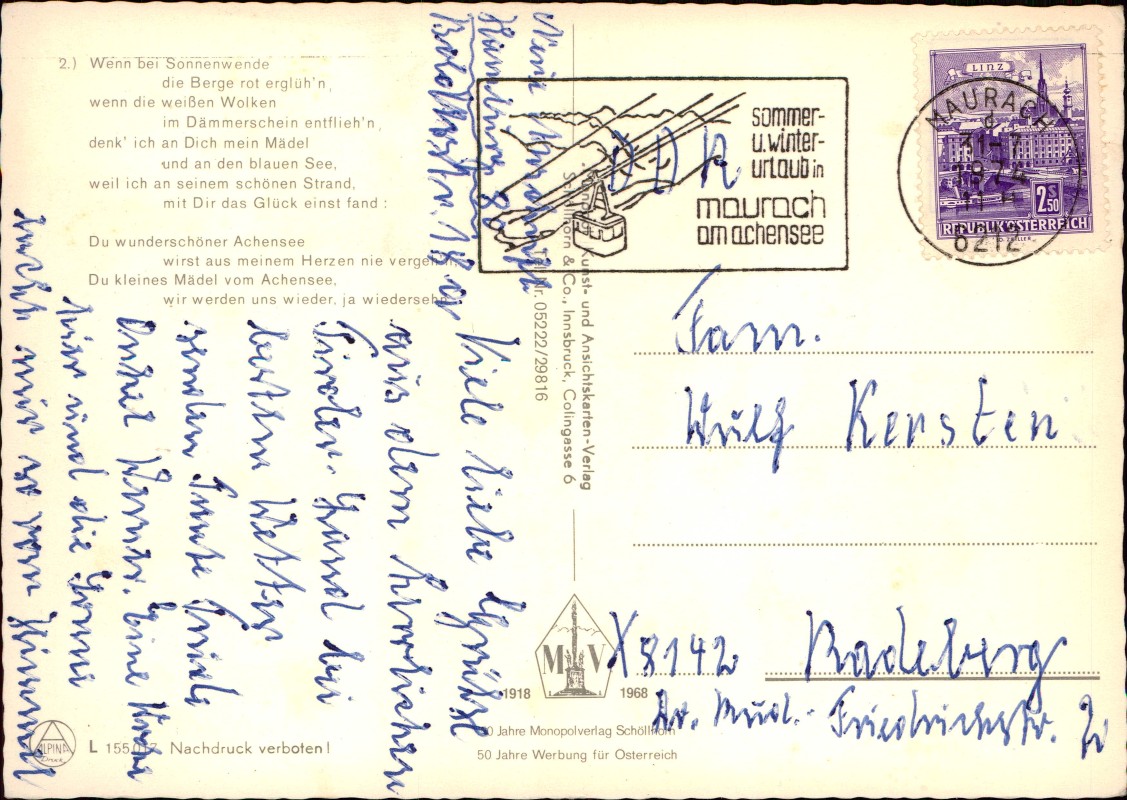 2.) Wenn bei Sonnenwende
die Berge rot erglüh'n,
wenn die weißen Wolken
im Dämmerschein entflieh'n,
denk' ich an Dich mein Mädel
und an den blauen See,
weil ich an seinem schönen Strand,
mit Dir das Glück einst fand:
Du wunderschöner Achensee
wirst aus meinem Herzen nie vergeh'n,
Du kleines Mädel vom Achensee,
wir werden uns wieder, ja wiedersehn
Viele liebe Grüße
aus dem herrlichen
Tiroler-Land bei
bestem Wetter
senden Tante Friedl
Onkel Werner. Eine Woche
hier und die Sonne
lacht nur so vom Himmel
Neue Anschrift
8
Kunst- und Ansichtskarten-Verlag
Schöllhorn & Co., Innsbruck, Colingasse 6
Nr. 05222/29816
sommer-
u. winter-
urlaub in
maurach
am achensee
DDR
LINZ
2S50
REPUBLIK ÖSTERREICH
MAURACH
d
31-7
1974
6212
Fam.
Wulf Kersten
X 8142 Radeberg
Dr. Friedrichstr.
M V
1918 1968
50 Jahre Monopolverlag Schöllhorn
50 Jahre Werbung für Österreich
ALPINA
Druck
L 155 Nachdruck verboten!